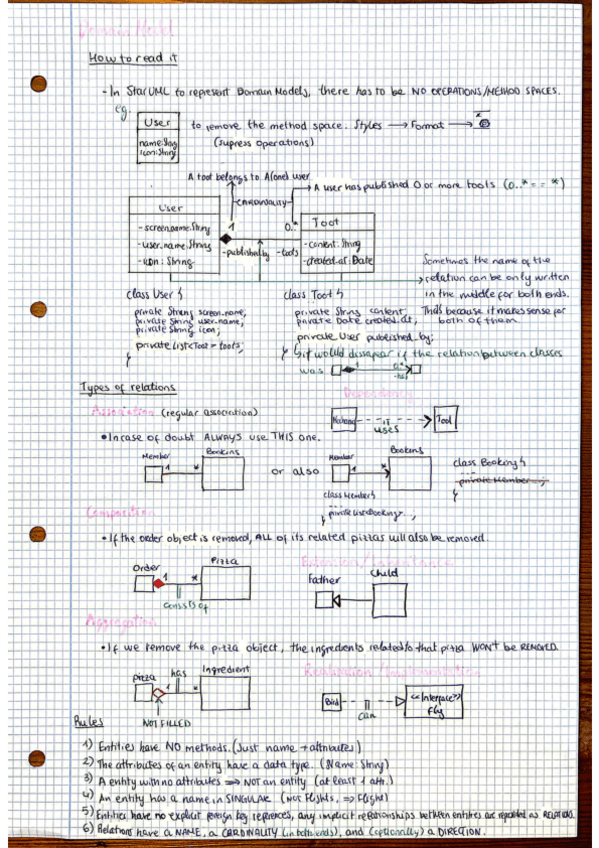 Domain Model
How to read it
- In StarUML to represent Domain Models, there has to be NO OPERATIONS/METHOD SPACES.
eg.
User
name: String
icon: String
to remove the method space. Styles → Format →
(Supress Operations)
A toot belongs to A(one) user
CARDINALITY
→ A user has published 0 or more toots (0..* == *)
User
- screen.name: String
- user.name: String
- icon: String
1
0..*
- published.by
- toots
Toot
- content: String
- created.at: Date
Sometimes the name of the
relation can be only written
in the middle for both ends.
That's because it makes sense for
both of them
class User {
private String screen.name;
private String user.name;
private String icon;
private List<Toot> toots;
}
class Toot {
private String content;
private Date created.at;
private User published.by;
} it would dissapear if the relation between classes
was
1
0..*
Types of relations
Dependency
Association (regular association)
uses
Tool
• In case of doubt ALWAYS use THIS one.
Member
1
*
Bookins
or also
Member
1
*
Bookins
class Booking {
private Member
}
class Member {
private List<Booking>
}
Composition
• If the order object is removed, ALL of its related pizzas will also be removed.
Order
1
*
Pizza
consists of
Extension/Inheritance
Father
Child
Aggregation
• If we remove the pizza object, the ingredients related to that pizza WON'T be REMOVED.
pizza
has
1
*
Ingredient
NOT FILLED
Realization/Implementation
Bird
can
<<Interface>>
Fly
Rules
1) Entities have NO methods. (Just name + attributes)
2) The attributes of an entity have a data type. (Name: String)
3) A entity with no attributes ⇒ NOT an entity (at least 1 attr.)
4) An entity has a name in SINGULAR (NOT Flights, ⇒ Flight)
5) Entities have no explicit foreign key references, any implicit relationships between entities are repesented as RELATIONS.
6) Relations have a NAME, a CARDINALITY (in both ends), and (optionally) a DIRECTION.